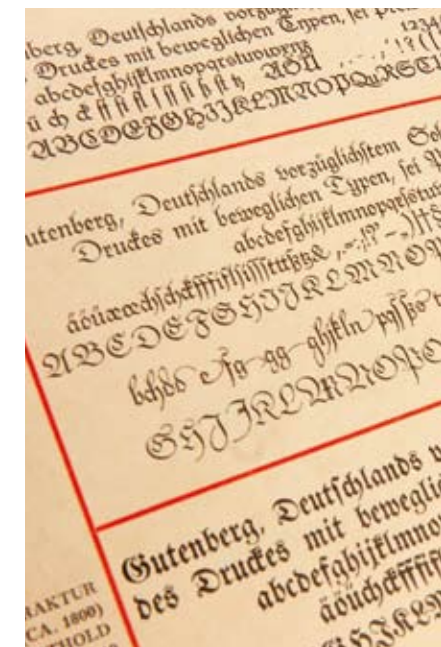 berg, Deutschlands
Druckes mit beweglichen Typen, sei
abcdefghijklmnopqrstuvwxyz 1234
ü ch ck ff fi fl ſſ ſt ß tz ÄÖÜ
ABCDEFGHIJKLMNOPQuRST
utenberg, Deutschlands vorzüglichstem
Druckes mit beweglichen Typen, sei
abcdefghijklmnopqrſstu
äöüæœchſchckfffiflſiſſſttttzßz& „=;!?“–
ABCDEFGHIJKLMNOP
GHIJKLMNOPQ
Gutenberg, Deutschlands
des Druckes mit beweglich
abcdefghijklmno
äöüchckfffifl
GHIJKLM
RAKTUR
CA. 1800)
THOLD